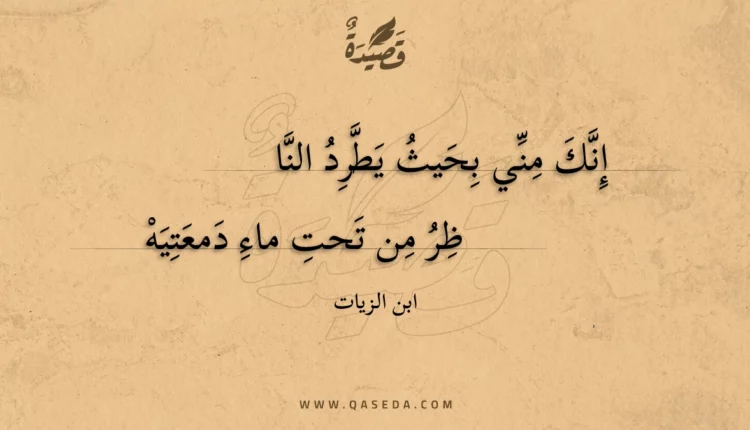 قَصِيدَةٌ
إِنَّكَ مِنِّي بِحَيثُ يَطَّرِدُ النَّا
ظِرُ مِن تَحتِ ماءِ دَمعَتِيَهْ
ابن الزيات
WWW.QASEDA.COM